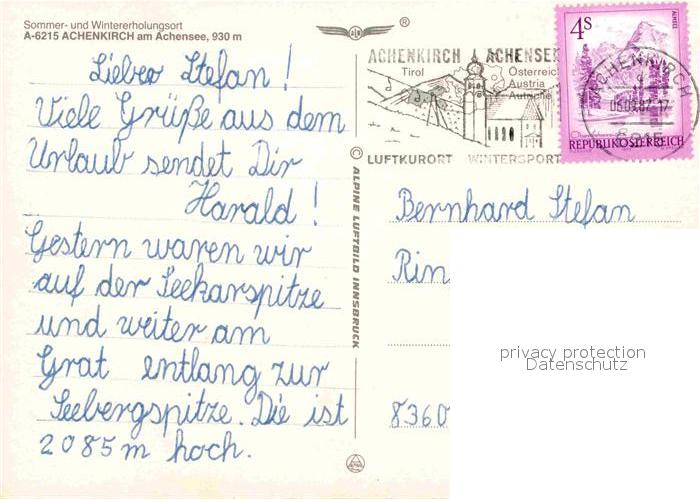 Sommer- und Wintererholungsort
A-6215 ACHENKIRCH am Achensee, 930 m
Lieber Stefan!
Viele Grüße aus dem
Urlaub sendet Dir
Harald!
Gestern waren wir
auf der Seekarspitze
und weiter am
Grat entlang zur
Seebergspitze. Die ist
2085m hoch.
®
© ALPINE LUFTBILD INNSBRUCK
ACHENKIRCH ACHENSEE
Tirol
Österreich
Austria
Autriche
LUFTKURORT WINTERSPORT
4S
ALMSEE
REPUBLIK ÖSTERREICH
ACHENKIRCH
6215
Bernhard Stefan
Rin
8360
privacy protection
Datenschutz